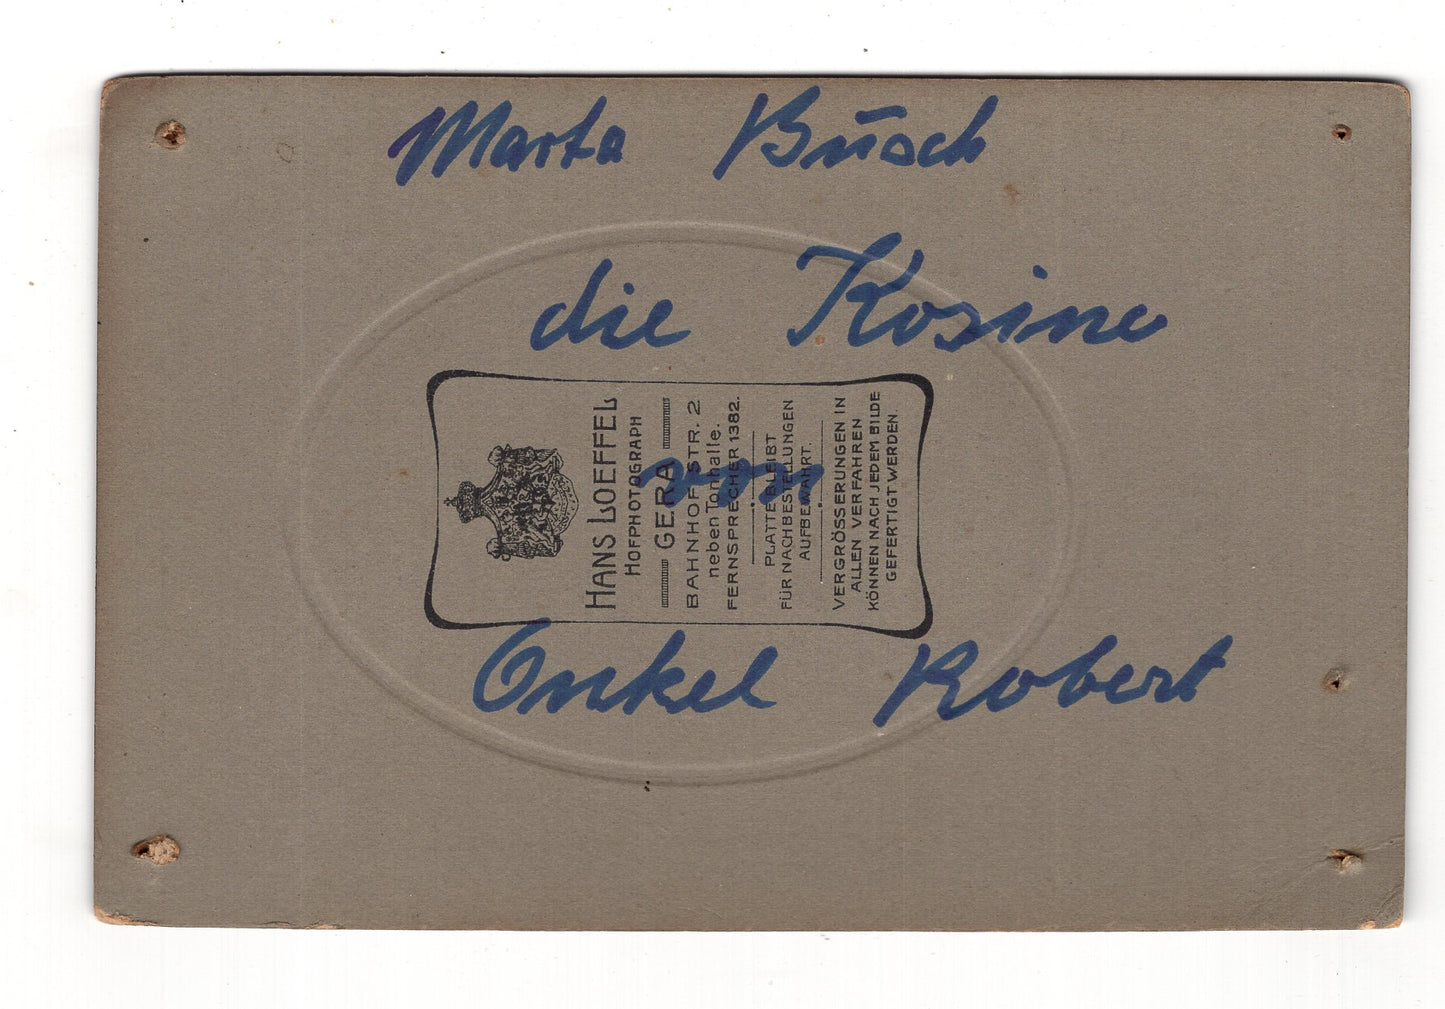 Marta Busch
die Kosine
von
Onkel Robert
HANS LOEFFEL
HOFPHOTOGRAPH
GERA
BAHNHOFSTR. 2
neben Tonhalle.
FERNSPRECHER 1382.
PLATTE BLEIBT
FÜR NACHBESTELLUNGEN
AUFBEWAHRT.
VERGRÖSSERUNGEN IN
ALLEN VERFAHREN
KÖNNEN NACH JEDEM BILDE
GEFERTIGT WERDEN